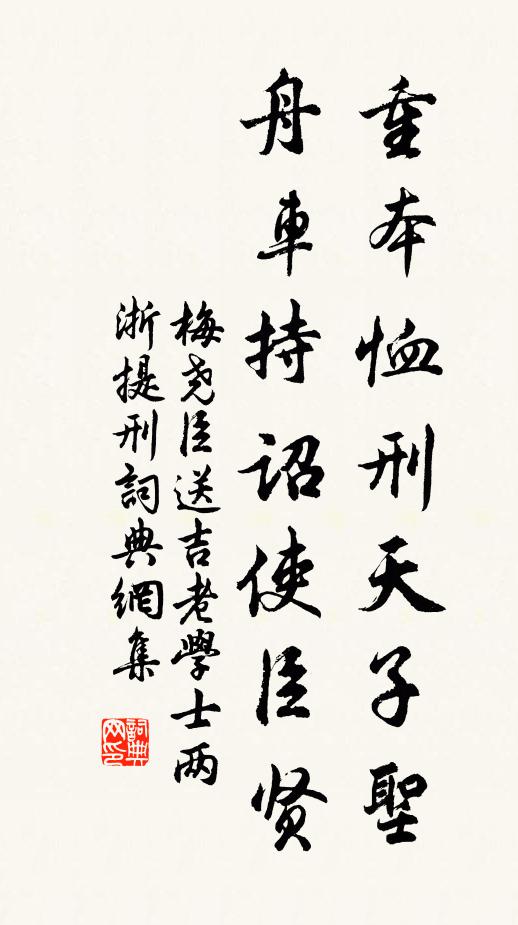 重本恤刑天子聖
舟車持詔使臣贤
梅尧臣送吉老學士两
浙提刑詞典網集
詞典网印